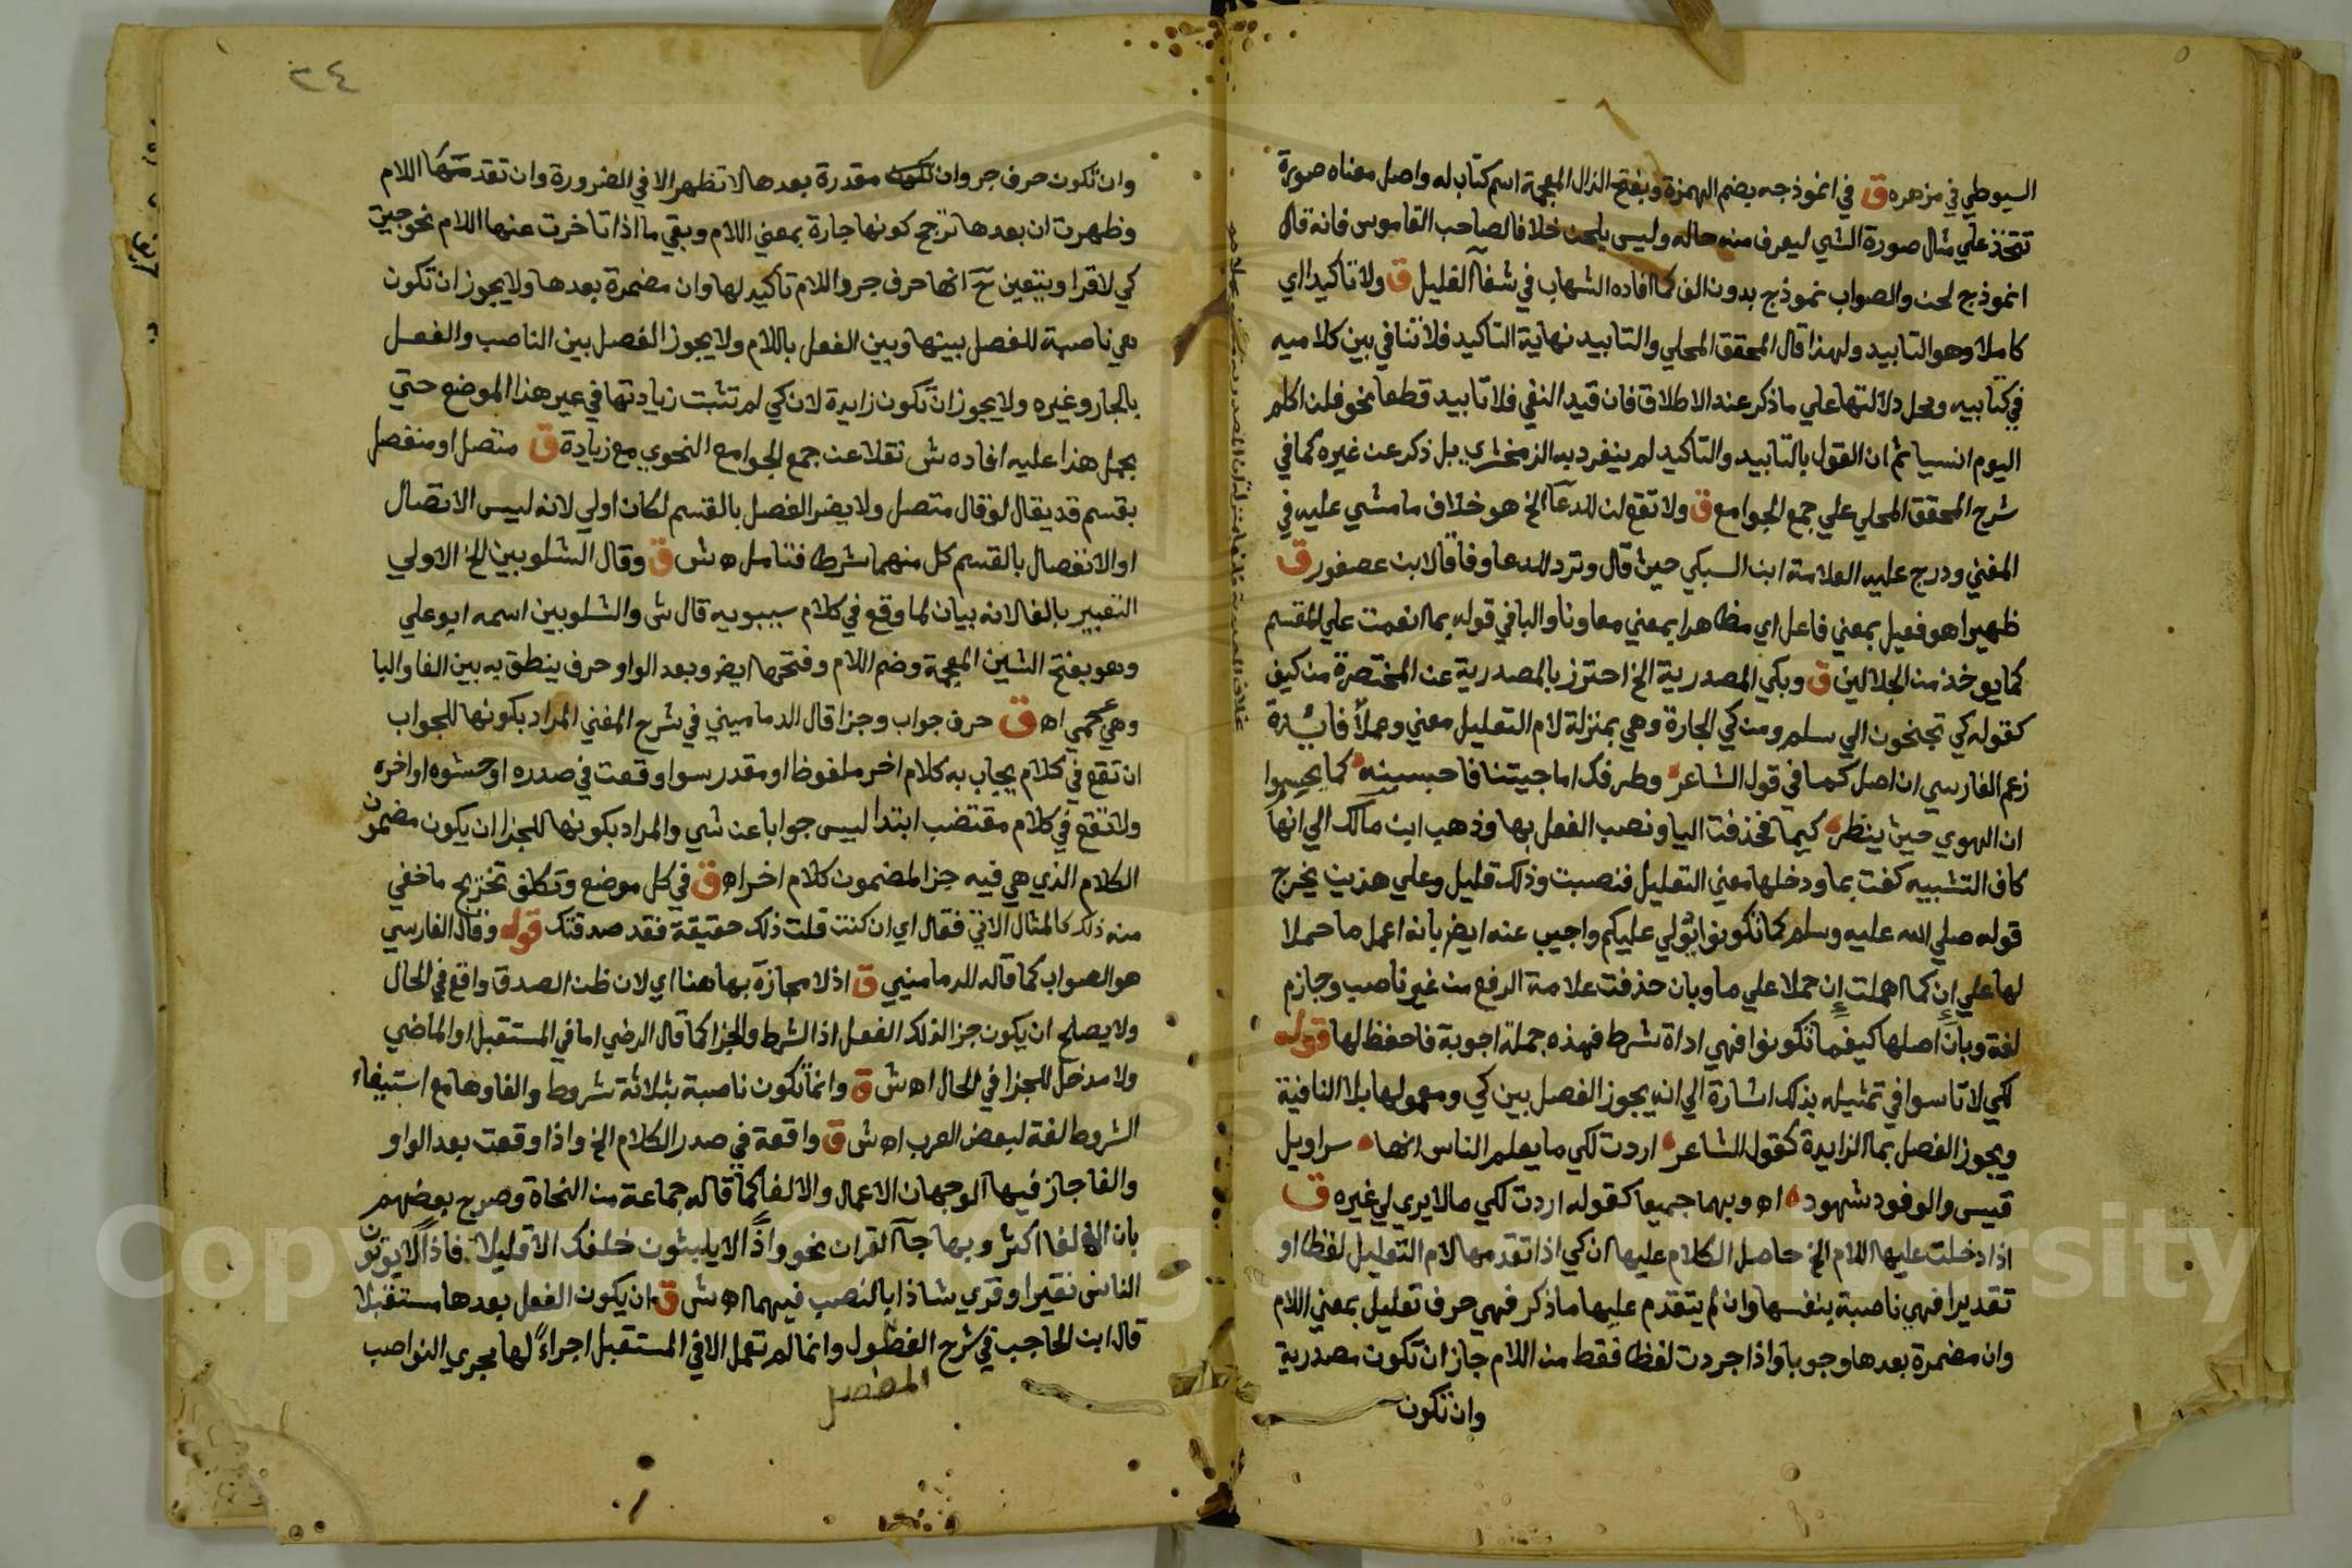 السيوطي في مزهره ق في انموذجه بضم الهمزة وبفتح الذال المعجمة اسم كتاب له واصل معناه صورة
تتخذ علي مثال صورة الشي ليعرف منه حاله وليس بلحن خلافا لصاحب القاموس فانه قال
انموذج لحن والصواب نموذج بدون الف كما افاده الشهاب في شفآ الغليل ق ولا تاكيدا اي
كاملا وهو التابيد ولهذا قال المحقق المحلي والتابيد نهاية التاكيد فلا تنافي بين كلاميه
في كتابيه ومحل دلالتها علي ما ذكر عند الاطلاق فان قيد النفي فلا تابيد قطعا نحو فلن اكلم
اليوم انسيا ثم ان القول بالتابيد والتاكيد لم ينفرد به الزمخشري بل ذكر عن غيره كما في
شرح المحقق المحلي علي جمع الجوامع ق ولا تقع لن للدعآ الخ هو خلاف ما مشي عليه في
المغني ودرج عليه العلامة ابن السبكي حيث قال وترد للدعا وفاقا لابن عصفور ق
ظهيرا هو فعيل بمعني فاعل اي مظاهرا بمعني معاونا والبا في قوله بما انعمت علي للقسم
كما يوخذ من الجلالين ق وبكي المصدرية الخ احترز بالمصدرية عن المختصرة من كيف
كقوله كي تجنحون الي سلم ومن كي الجارة وهي بمنزلة لام التعليل معني وعملاً فائدة
زعم الفارسي ان اصل كما في قول الشاعر وطرفك اما جيتنا فاحبسنه كما يحسبوا
ان الهوي حيث ينظر كيما فحذفت اليا ونصب الفعل بها وذهب ابن مالك الي انها
كاف التشبيه كفت بما ودخلها معني التعليل فنصبت وذلك قليل وعلي هذين يخرج
قوله صلي الله عليه وسلم كما تكونوا يولي عليكم واجيب عنه ايضر بانه اعمل ما حملا
لها علي إن كما اهملت إن حملا علي ما وبان حذفت علامة الرفع من غير ناصب وجازم
لغة وبان اصلها كيفما تكونوا فهي اداة شرط فهذه جملة اجوبة فاحفظ لها قوله
لكي لا تاسوا في تمثيله بذلك اشارة الي انه يجوز الفصل بين كي ومعمولها بلا النافية
ويجوز الفصل بما الزايدة كقول الشاعر اردت لكي ما يعلم الناس انها سراويل
قيس والوفود شهود اه وبهما جميعا كقوله اردت لكي ما لا يري لي غيره ق
اذا دخلت عليها اللام الخ حاصل الكلام عليها ان كي اذا تقدمها لام التعليل لفظا او
تقديرا فهي ناصبة بنفسها وان لم يتقدم عليها ما ذكر فهي حرف تعليل بمعني اللام
وان مضمرة بعدها وجوبا واذا جردت لفظا فقط من اللام جاز ان تكون مصدرية
وان تكون
٢٤
وان تكون حرف جر وان تكون مقدرة بعدها لا تظهر الا في الضرورة وان تقدمتها اللام
وظهرت ان بعدها ترجح كونها جارة بمعني اللام وبقي ما اذا تاخرت عنها اللام نحو جيت
كي لاقرا ويتعين ح انها حرف جر واللام تاكيد لها وان مضمرة بعدها ولا يجوز ان تكون
هي ناصبة للفصل بينها وبين الفعل باللام ولا يجوز الفصل بين الناصب والفعل
بالجار وغيره ولا يجوز ان تكون زايدة لان كي لم تثبت زيادتها في غير هذا الموضع حتي
يحمل هذا عليه افاده ش نقلا عن جمع الجوامع النحوي مع زيادة ق متصل او منفصل
بقسم قد يقال لو قال متصل ولا يضر الفصل بالقسم لكان اولي لانه ليس الاتصال
او الانفصال بالقسم كل منهما شرطا فتامل اه ش ق وقال الشلوبين الخ الاولي
التعبير بالفا لانه بيان لما وقع في كلام سيبويه قال ش والشلوبين اسمه ابو علي
وهو بفتح الشين المعجمة وضم اللام وفتحها ايضر وبعد الواو حرف ينطق به بين الفا والبا
وهي عجمي اه ق حرف جواب وجزا قال الدماميني في شرح المغني المراد بكونها للجواب
ان تقع في كلام يجاب به كلام اخر ملفوظ او مقدر سوا وقعت في صدره او حشوه او اخره
ولا تقع في كلام مقتضب ابتدا ليس جوابا عن شي والمراد بكونها للجزا ان يكون مضمون
الكلام الذي هي فيه جزا لمضمون كلام اخر اه ق في كل موضع وتكلف تخريج ما خفي
منه ذلك كالمثال الاتي فقال اي ان كنت قلت ذلك حقيقة فقد صدقتك قوله وقال الفارسي
هو الصواب كما قاله الدماميني ق اذ لا مجازة بها هنا اي لان ظن الصدق واقع في الحال
ولا يصلح ان يكون جزا لذلك الفعل اذ الشرط والجزا كما قال الرضي اما في المستقبل او الماضي
ولا مدخل للجزا في الحال اه ش ق وانما تكون ناصبة بثلاثة شروط والغاوها مع استيفاء
الشروط لغة لبعض العرب اه ش ق واقعة في صدر الكلام الخ واذا وقعت بعد الواو
والفا جاز فيها الوجهان الاعمال والالغا كما قاله جماعة من النحاة وصرح بعضهم
بان الالغا اكثر وبها جآ القران نحو واذًا لا يلبثون خلفك الا قليلا فاذًا لا يوتون
الناس نقيرا وقري شاذا بالنصب فيهما اه ش ق ان يكون الفعل بعدها مستقبلا
قال ابن الحاجب في شرح المفصل وانما لم تعمل الا في المستقبل اجراءً لها مجري النواصب
المفصل
Copyright © King Saud University